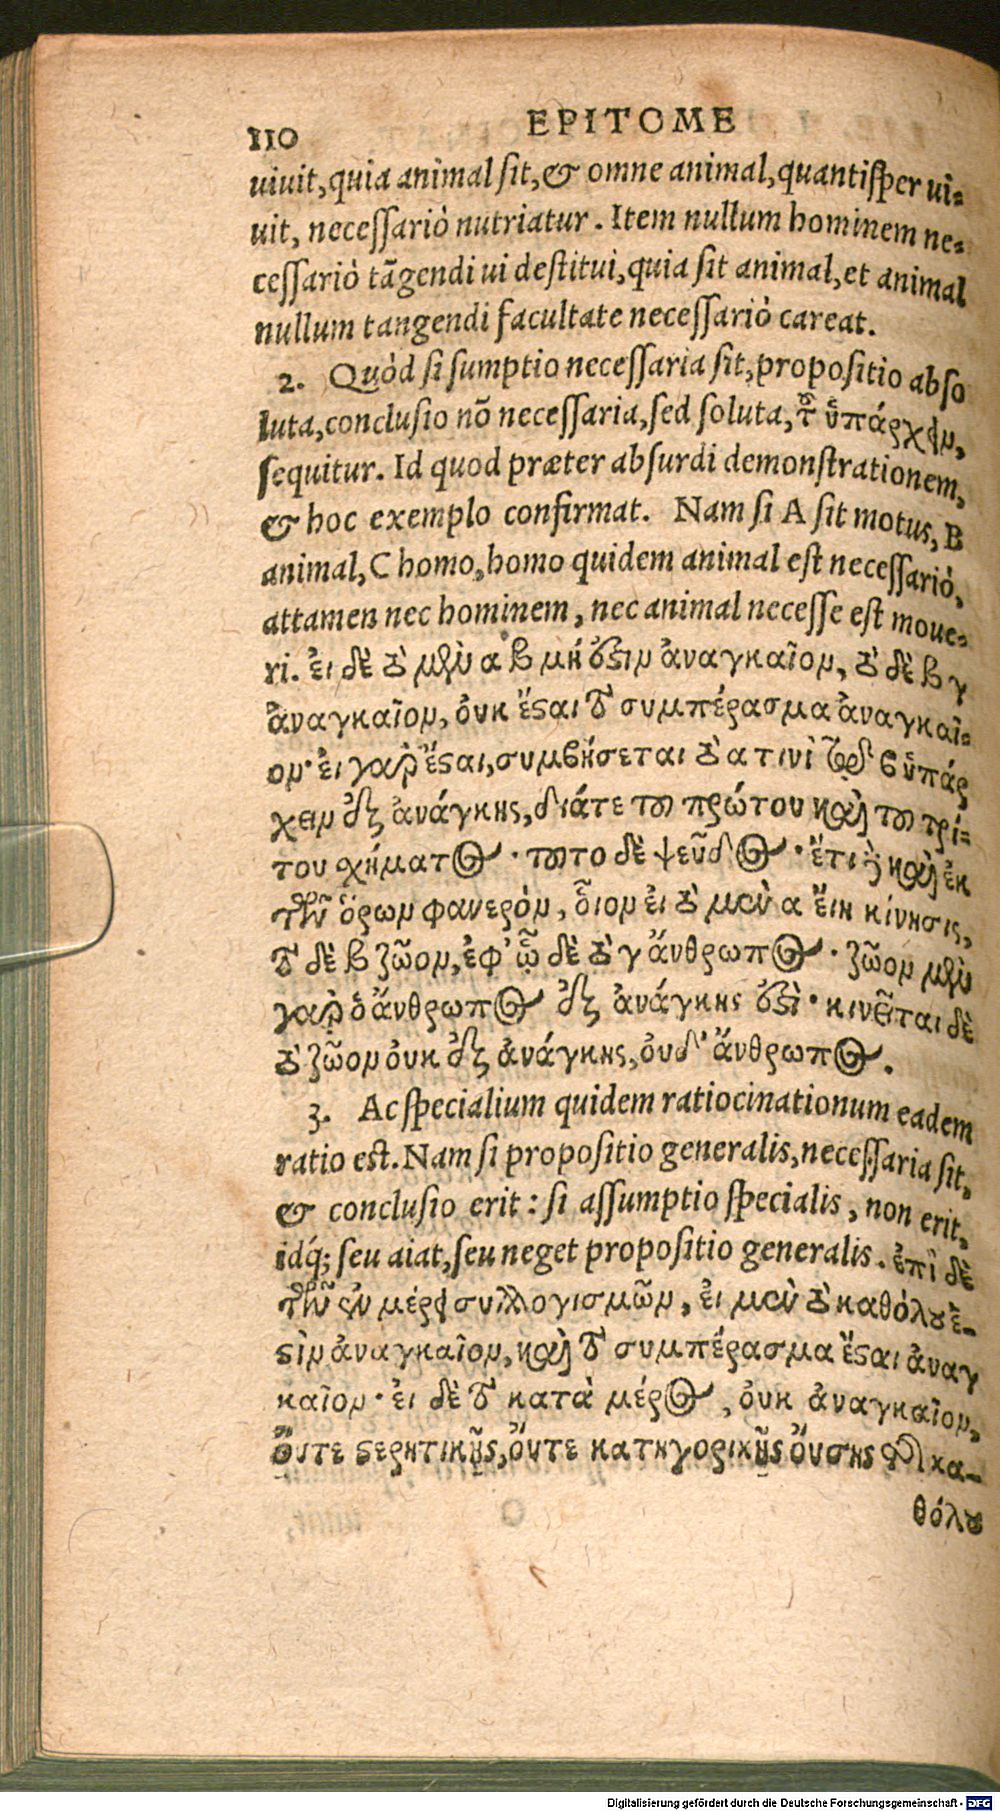 110 EPITOME
uiuit, quia animal sit, & omne animal, quantisper ui-
uit, necessariò nutriatur. Item nullum hominem ne-
cessariò tãgendi ui destitui, quia sit animal, et animal
nullum tangendi facultate necessariò careat.
2. Quòd si sumptio necessaria sit, propositio abso
luta, conclusio nõ necessaria, sed soluta, τοῦ ὑπάρχειν,
sequitur. Id quod præter absurdi demonstrationem,
& hoc exemplo confirmat. Nam si A sit motus, B
animal, C homo, homo quidem animal est necessariò,
attamen nec hominem, nec animal necesse est moue-
ri. εἰ δὲ τὸ μὲν α β μή ἐστιν ἀναγκαῖον, τὸ δὲ β γ
ἀναγκαῖον, οὐκ ἔσται τὸ συμπέρασμα ἀναγκαῖ-
ον· εἰ γὰρ ἔσται, συμβήσεται τὸ α τινὶ τῶν β ὑπάρ
χειν ἐξ ἀνάγκης, διάτε τοῦ πρώτου καὶ τοῦ τρί-
του σχήματος· τοῦτο δὲ ψεῦδος· ἔτι καὶ ἐκ
τῶν ὅρων φανερὸν, οἷον εἰ τὸ μὲν α εἴη κίνησις,
τὸ δὲ β ζῶον, ἐφ' ᾧ δὲ τὸ γ ἄνθρωπος· ζῶον μὲν
γὰρ ὁ ἄνθρωπος ἐξ ἀνάγκης ἐστὶ· κινεῖται δὲ
τὸ ζῶον οὐκ ἐξ ἀνάγκης, οὐδ' ἄνθρωπος.
3. Ac specialium quidem ratiocinationum eadem
ratio est. Nam si propositio generalis, necessaria sit,
& conclusio erit: si assumptio specialis, non erit,
idq́; seu aiat, seu neget propositio generalis. ἐπὶ δὲ
τῶν ἐν μέρει συλλογισμῶν, εἰ μὲν τὸ καθόλου ἐ-
στὶν ἀναγκαῖον, καὶ τὸ συμπέρασμα ἔσται ἀναγ
καῖον· εἰ δὲ τὸ κατὰ μέρος, οὐκ ἀναγκαῖον,
οὔτε στερητικῆς, οὔτε κατηγορικῆς οὔσης τῆς κα-
θόλου
Digitalisierung gefördert durch die Deutsche Forschungsgemeinschaft - DFG